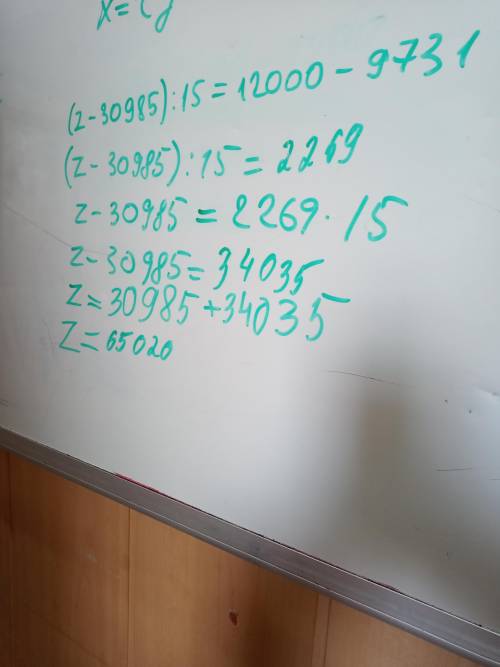 x=
(z-30985):15=12000-9731
(z-30985):15=2269
z-30985=2269·15
z-30985=34035
z=30985+34035
z=65020